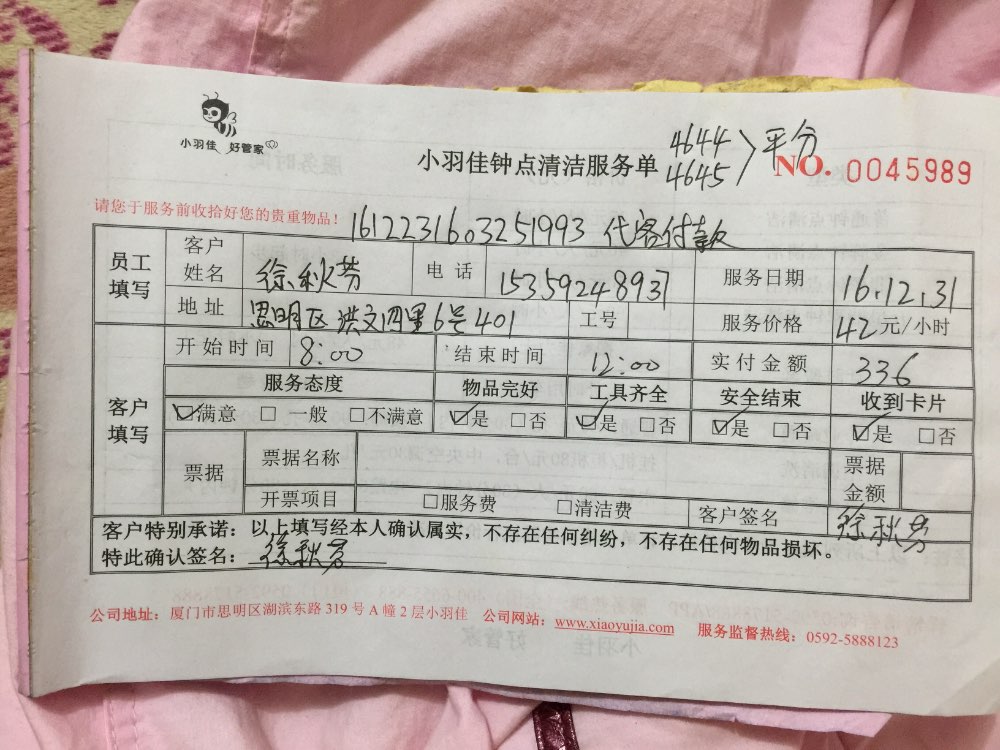 小羽佳 好管家
小羽佳钟点清洁服务单
4644
4645 〉平分
NO. 0045989
请您于服务前收拾好您的贵重物品！
1612231603251993 代客付款
员工填写 客户姓名 徐秋芳 电话 15359248937 服务日期 16.12.31
地址 思明区洪文四里6号401 工号 服务价格 42元/小时
开始时间 8:00 结束时间 12:00 实付金额 336
客户填写 服务态度 物品完好 工具齐全 安全结束 收到卡片
☑满意 □ 一般 □不满意 ☑是 □否 ☑是 □否 ☑是 □否 ☑是 □否
票据 票据名称 票据金额
开票项目 □服务费 □清洁费 客户签名 徐秋芳
客户特别承诺：以上填写经本人确认属实，不存在任何纠纷，不存在任何物品损坏。
特此确认签名：徐秋芳
公司地址：厦门市思明区湖滨东路 319 号 A 幢 2 层小羽佳 公司网站：www.xiaoyujia.com 服务监督热线：0592-5888123